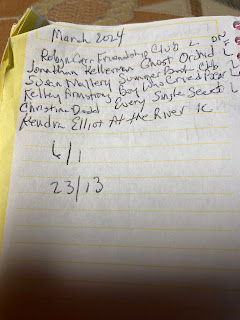 March 2024
Robyn Carr Friendship Club L DN
Jonathan Kellerman Ghost Orchid L
Susan Mallery Summer Book Club L
Kelley Armstrong Boy Who Cried Bear L
Christina Dodd Every Single Secret L
Kendra Elliot At the River K
6/1
23/13